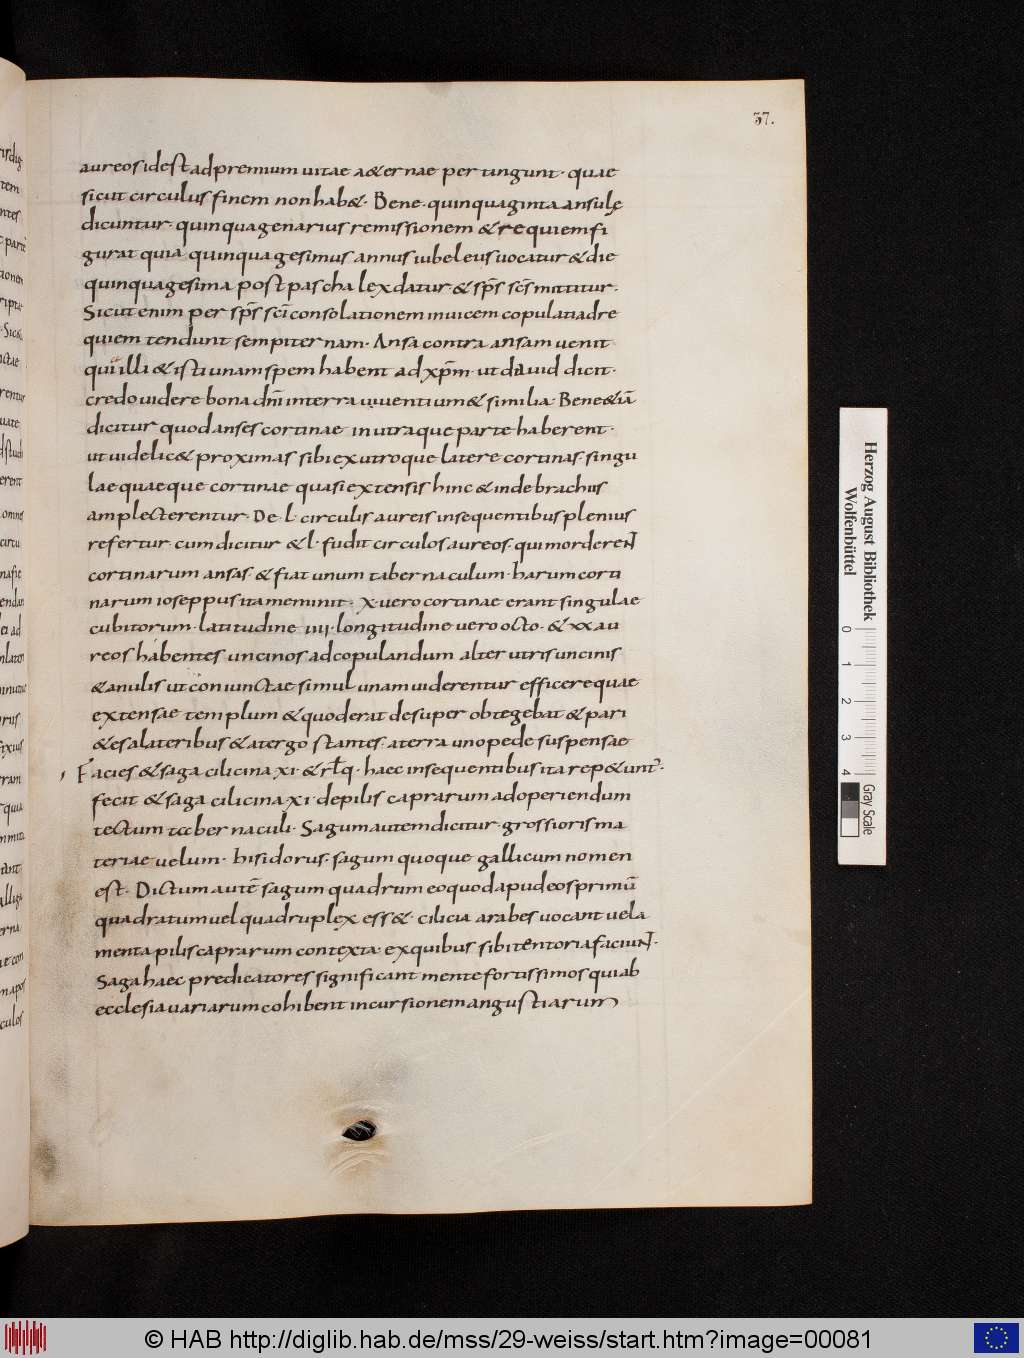 37.
aureos idest ad premium uitae a&ernae pertingunt· quae
sicut circulus finem non hab&· Bene· quinquaginta ansulę
dicuntur· quinquagenarius remissionem & requiem fi
gurat quia quinquagesimus annus iubeleus uocatur & die
quinquagesima post pascha lex datur & sp̄s sc̄s mittitur·
Sicut enim per sp̄s sc̄i consolationem inuicem copulati ad re
quiem tendunt sempiternam· Ansa contra ansam uenit
qui illi & isti unam spem habent ad xp̄m· ut dauid dicit·
credo uidere bona dn̄i in terra uiuentium & similia· Bene &iā
dicitur quod anses cortinae in utraque parte haberent·
ut uidelic& proximas sibi ex utroque latere cortinas singu
lae quaeque cortinae quasi extensis hinc & inde brachiis
amplecterentur· De·l· circulis aureis insequentibus plenius
refertur· cum dicitur &·l· fudit circulos aureos· qui morderent
cortinarum ansas· & fiat unum tabernaculum· harum corti
narum ioseppus ita meminit· x· uero cortinae erant singulae
cubitorum· latitudine iiii· longitudine uero octo· & xx au
reos habentes uncinos ad copulandum alterutris uncinis
& anulis ut coniunctae simul unam uiderentur efficere quae
extensae templum & quod erat desuper obtegebat & pari
&es a lateribus & a tergo stantes a terra uno pede suspensae
Facies & saga cilicina xi· & rł q· haec in sequentibus ita rep&unt̄·
fecit & saga cilicina xi· de pilis caprarum ad operiendum
tectum tabernaculi· Sagum autem dicitur· grossioris ma
teriae uelum· hisidorus· sagum quoque gallicum nomen
est· Dictum autē sagum quadrum eo quod apud eos primū
quadratum uel quadruplex ess&· cilicia arabes uocant uela
menta pilis caprarum contexta· ex quibus sibi tentoria faciunt·
Saga haec predicatores significant mente fortissimos qui ab
ecclesia uariarum cohibent incursionem angustiarum
Herzog August Bibliothek
Wolfenbüttel
0 1 2 3 4
Gray Scale
© HAB http://diglib.hab.de/mss/29-weiss/start.htm?image=00081